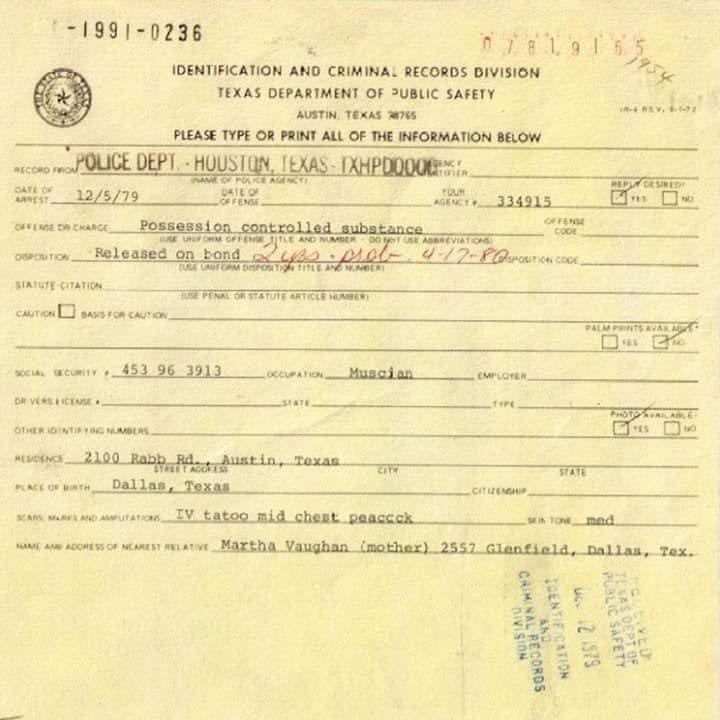 -1991-0236
07819165
1954
IDENTIFICATION AND CRIMINAL RECORDS DIVISION
TEXAS DEPARTMENT OF PUBLIC SAFETY
AUSTIN, TEXAS 78765
IR-4 REV. 9-1-72
PLEASE TYPE OR PRINT ALL OF THE INFORMATION BELOW
RECORD FROM POLICE DEPT. - HOUSTON, TEXAS - TXHPD0000
(NAME OF POLICE AGENCY)
DATE OF ARREST 12/5/79 DATE OF OFFENSE YOUR AGENCY # 334915 REPLY DESIRED? YES NO
OFFENSE OR CHARGE Possession controlled substance OFFENSE CODE
(USE UNIFORM OFFENSE TITLE AND NUMBER - DO NOT USE ABBREVIATIONS)
DISPOSITION Released on bond 2 yrs. prob- 4-17-80 DISPOSITION CODE
(USE UNIFORM DISPOSITION TITLE AND NUMBER)
STATUTE CITATION
(USE PENAL OR STATUTE ARTICLE NUMBER)
CAUTION BASIS FOR CAUTION
PALM PRINTS AVAILABLE?
YES NO
SOCIAL SECURITY # 453 96 3913 OCCUPATION Muscian EMPLOYER
DRIVERS LICENSE # STATE TYPE
PHOTO AVAILABLE?
OTHER IDENTIFYING NUMBERS YES NO
RESIDENCE 2100 Rabb Rd., Austin, Texas
STREET ADDRESS CITY STATE
PLACE OF BIRTH Dallas, Texas CITIZENSHIP
SCARS, MARKS AND AMPUTATIONS IV tatoo mid chest peaccck SKIN TONE med
NAME AND ADDRESS OF NEAREST RELATIVE Martha Vaughan (mother) 2557 Glenfield, Dallas, Tex.
RECEIVED
TEXAS DEPT OF
PUBLIC SAFETY
12 1979
IDENTIFICATION
AND
CRIMINAL RECORDS
DIVISION